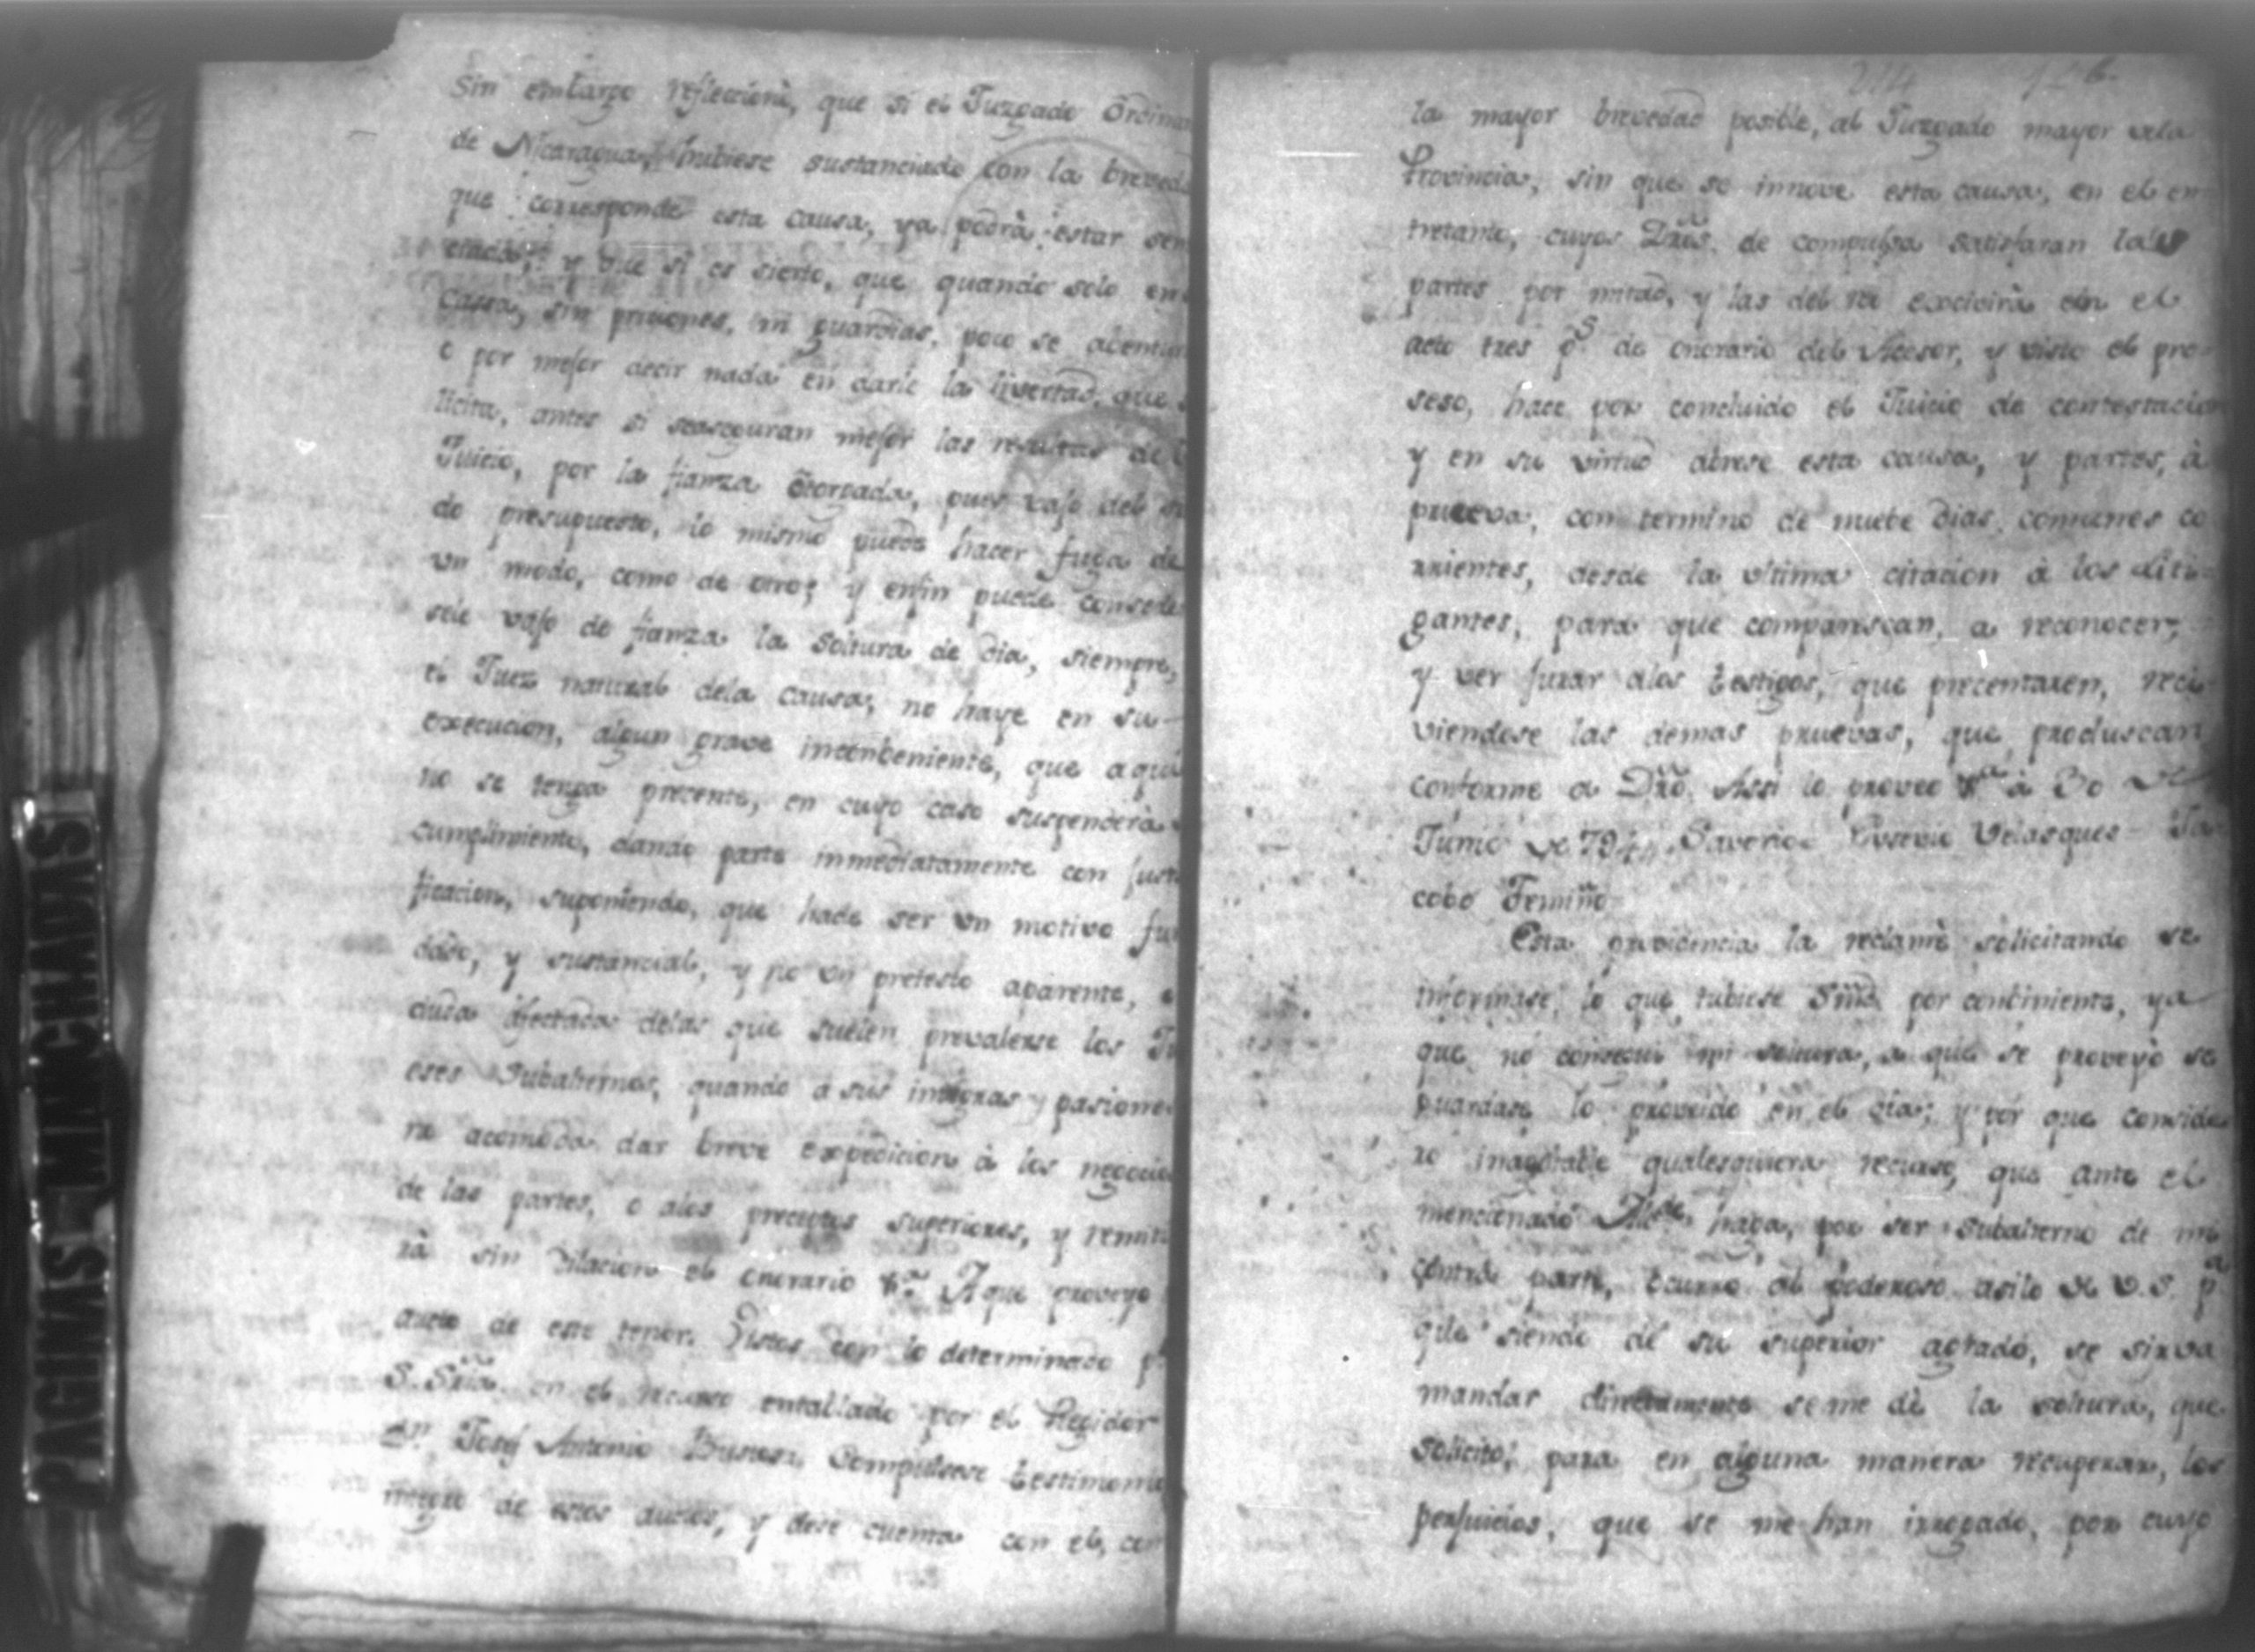 Sin embargo reflecciona, que si el Juzgado Ordinar
de Nicaragua, hubiese sustanciado con la breved
que corresponde esta causa, ya podrà estar sen
enciada; y que si es sierto, que quando solo en
cassa, sin priciones, ni guardias, poco se abentur
o por mejor decir nada en darle la livertad, que
licita, antes si seaseguran mejor las resultas de
Juicio, por la fianza otorgada, pues vajo del
do presupuesto, lo mismo puede hacer fuga de
un modo, como de otro; y enfin puede consede
sele vajo de fianza la soltura de dia, siempre,
el Juez natural dela causa, no haye en su
execucion, algun grave inconbeniente, que aqui
no se tenga precente, en cuyo caso suspenderà
cumplimiento, dando parte inmediatamente con justi
ficacion, suponiendo, que hade ser un motivo fun
dado, y sustancial, y no un pretesto aparente,
duda afectada delas que suelen prevalerse los Ju
eses Subalternos, quando à sus intrigas y pasiones
no acomoda dar breve expedicion à los negocios
de las partes, o alos preceptos superiores, y remiti
rà sin dilacion el onorario A que proveyo
aucto de este tenor. Vistos con lo determinado pr
S. Sria. en el recurso entablado por el Regidor
Dn. Josef Antonio Bustos, Compulsese testimonio
integro de estos auctos, y dese cuenta con el, con
214 126
la mayor brevedad posible, al Juzgado mayor dela
Provincia, sin que se innove esta causa, en el en
tretanto, cuyos Dros. de compulsa satisfaran las
partes por mitad, y las del reo excivirà en el
acto tres ps. de onorario del Acesor, y visto el pro
seso, hace por concluido el Juicio de contestacion
y en su virtud abrese esta causa, y partes, à
prueva, con termino de nuebe dias comunes co
rrientes, desde la ultima citacion à los Liti
gantes, para que compariscan, a reconocer,
y ver jurar alos testigos, que precentaren, reci
viendose las demas pruevas, que produscan
conforme a Dro. Assi lo proveo à 30 de
Junio de 794 Saverio Eusevio Velasques Ja
cobo Fermiño
Esta providencia la reclamè solicitando se
informase, lo que tubiese Smd. por conbiniente, ya
que no consegui mi soltura, a que se proveyò se
guardase lo proveido en el dia; y por que conside
ro inadotable qualesquiera recurso, que ante el
mencionado Alce. haga, por ser subalterno de mi
contra parte, ocurro al poderoso asilo de V.S. pa
que siendo de su superior agrado, se sirva
mandar directamente seme dè la soltura, que
solicito, para en alguna manera recuperar, los
perjuicios, que se me han irrogado, por cuyo
PAGINAS MANCHADAS